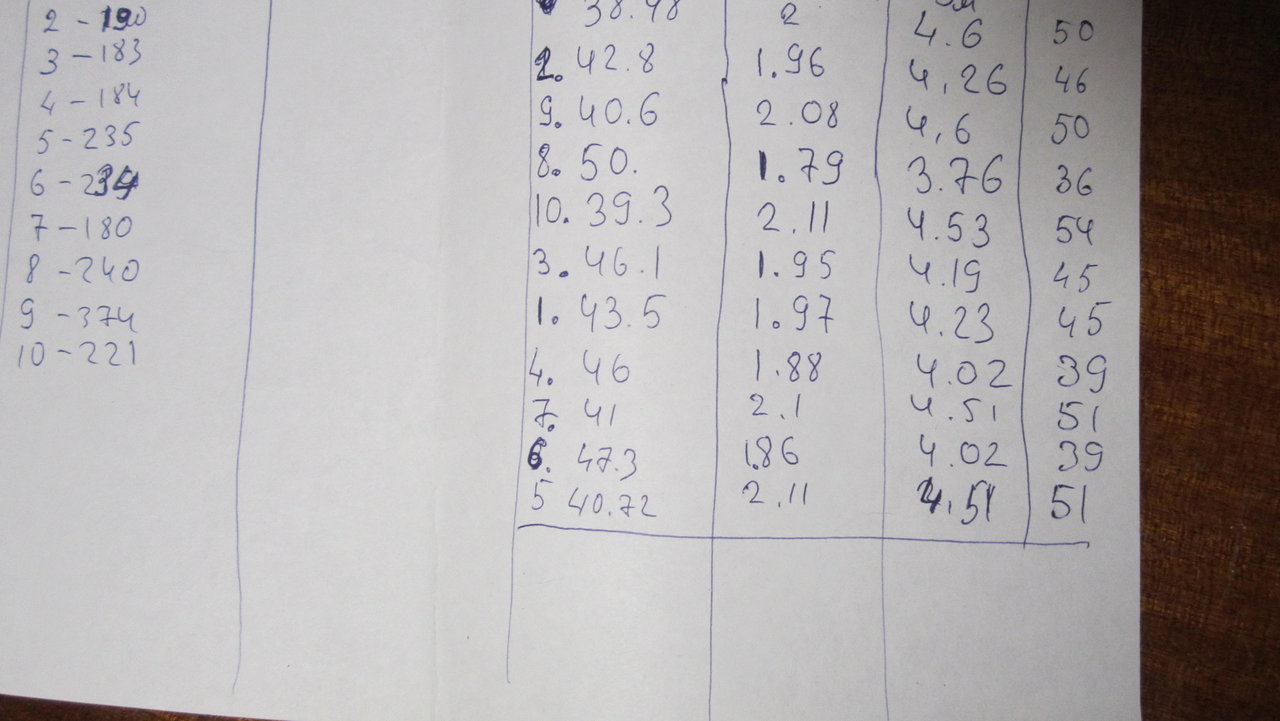 2 - 190
3 - 183
4 - 184
5 - 235
6 - 234
7 - 180
8 - 240
9 - 374
10 - 221
38.48 2 4.6 50
2. 42.8 1.96 4.26 46
9. 40.6 2.08 4,6 50
8. 50. 1.79 3.76 36
10. 39.3 2.11 4.53 54
3. 46.1 1.95 4.19 45
1. 43.5 1.97 4.23 45
4. 46 1.88 4.02 39
7. 41 2.1 4.51 51
6. 47.3 1.86 4.02 39
5 40.72 2.11 4.51 51